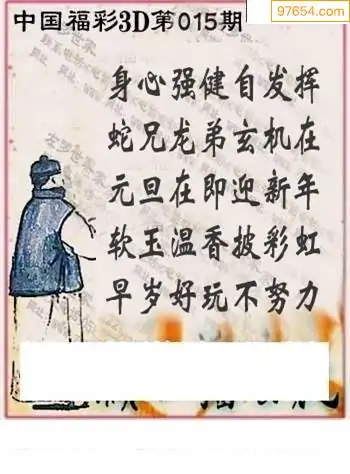 97654.com
中国福彩3D第015期
身心强健自发挥
蛇兄龙弟玄机在
元旦在即迎新年
软玉温香披彩虹
早岁好玩不努力